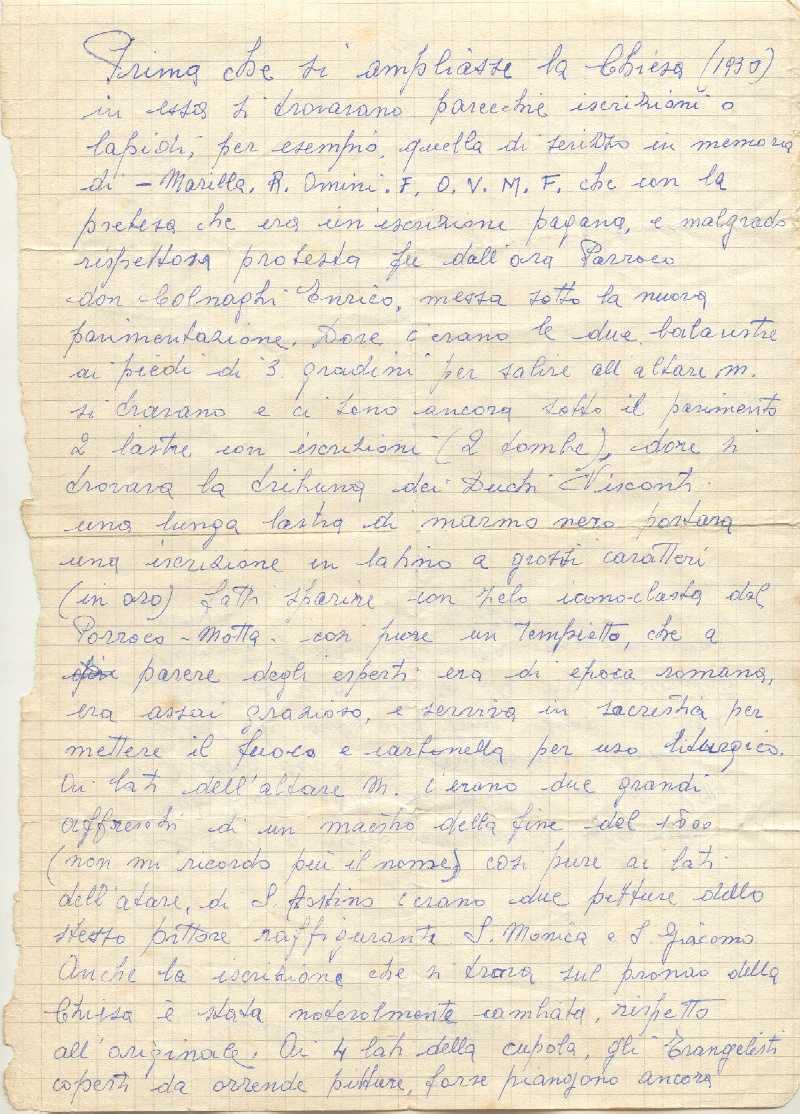 Prima che si ampliasse la Chiesa (1930)
in essa si trovavano parecchie iscrizioni o
lapidi, per esempio, quella di scritto in memoria
di - Marilla. R. Omini. F. O. V. M. F. che con la
pretesa che era un'iscrizione pagana, e malgrado
rispettosa protesta fu dall'ora Parroco
don Colnaghi Enrico, messa sotto la nuova
pavimentazione. Dove c'erano le due balaustre
ai piedi di 3 gradini per salire all'altare m.
si travano e ci sono ancora sotto il pavimento
2 lastre con iscrizioni (2 tombe), dove si
trovava la tribuna dei Duchi Visconti.
una lunga lastra di marmo nero portava
una iscrizione in latino a grossi caratteri
(in oro) fatti sparire con zelo iconoclasta dal
Parroco - Motta. così pure un Tempietto, che a
parere degli esperti era di epoca romana,
era assai grazioso, e serviva in sacrestia per
mettere il fuoco e carbonella per uso liturgico.
Ai lati dell'altare M. c'erano due grandi
affreschi di un maestro della fine del 1800
(non mi ricordo più il nome) così pure ai lati
dell'atare, di S. Agstino c'erano due pitture dello
stesso pittore raffigurante S. Monica e S. Giacomo
Anche la iscrizione che si trova sul pronao della
Chiesa è stata notevolmente cambiata, rispetto
all'originale. Ai 4 lati della cupola, gli Evangelisti
coperti da orrende pitture, forse piangono ancora